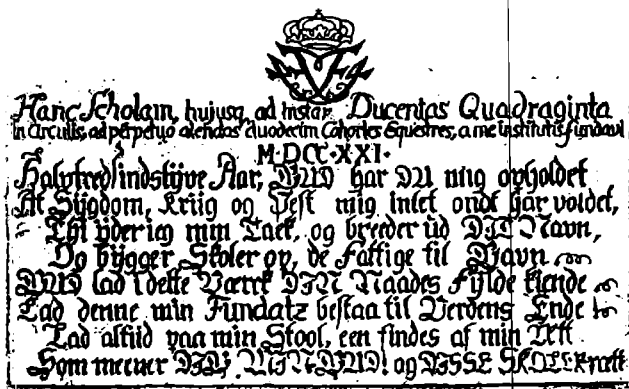 Hanc Scholam, hujusq, ad instar Ducentas Quadraginta
in circulis, ad perpetuo alendas duodecim Cohortes Equestres, a me institutis fundavi
M·DCC·XXI·
Halvtredsindstijve Aar, GUD har DU mig opholdet
At Sijgdom, Kriig og Pest mig intet ondt har voldet,
Thi ijder ieg min Tack, og breeder ud DIT Navn,
Og bijgger Skoler op, de Fattige til Gavn
GUD lad i dette Værck DIN Naades Fylde kiende
Lad denne min Fundatz bestaa til Verdens Ende
Lad altiid paa min Stool, een findes af min Ætt
Som meener DIG, MIN GUD! og DISSE SKOLER rætt